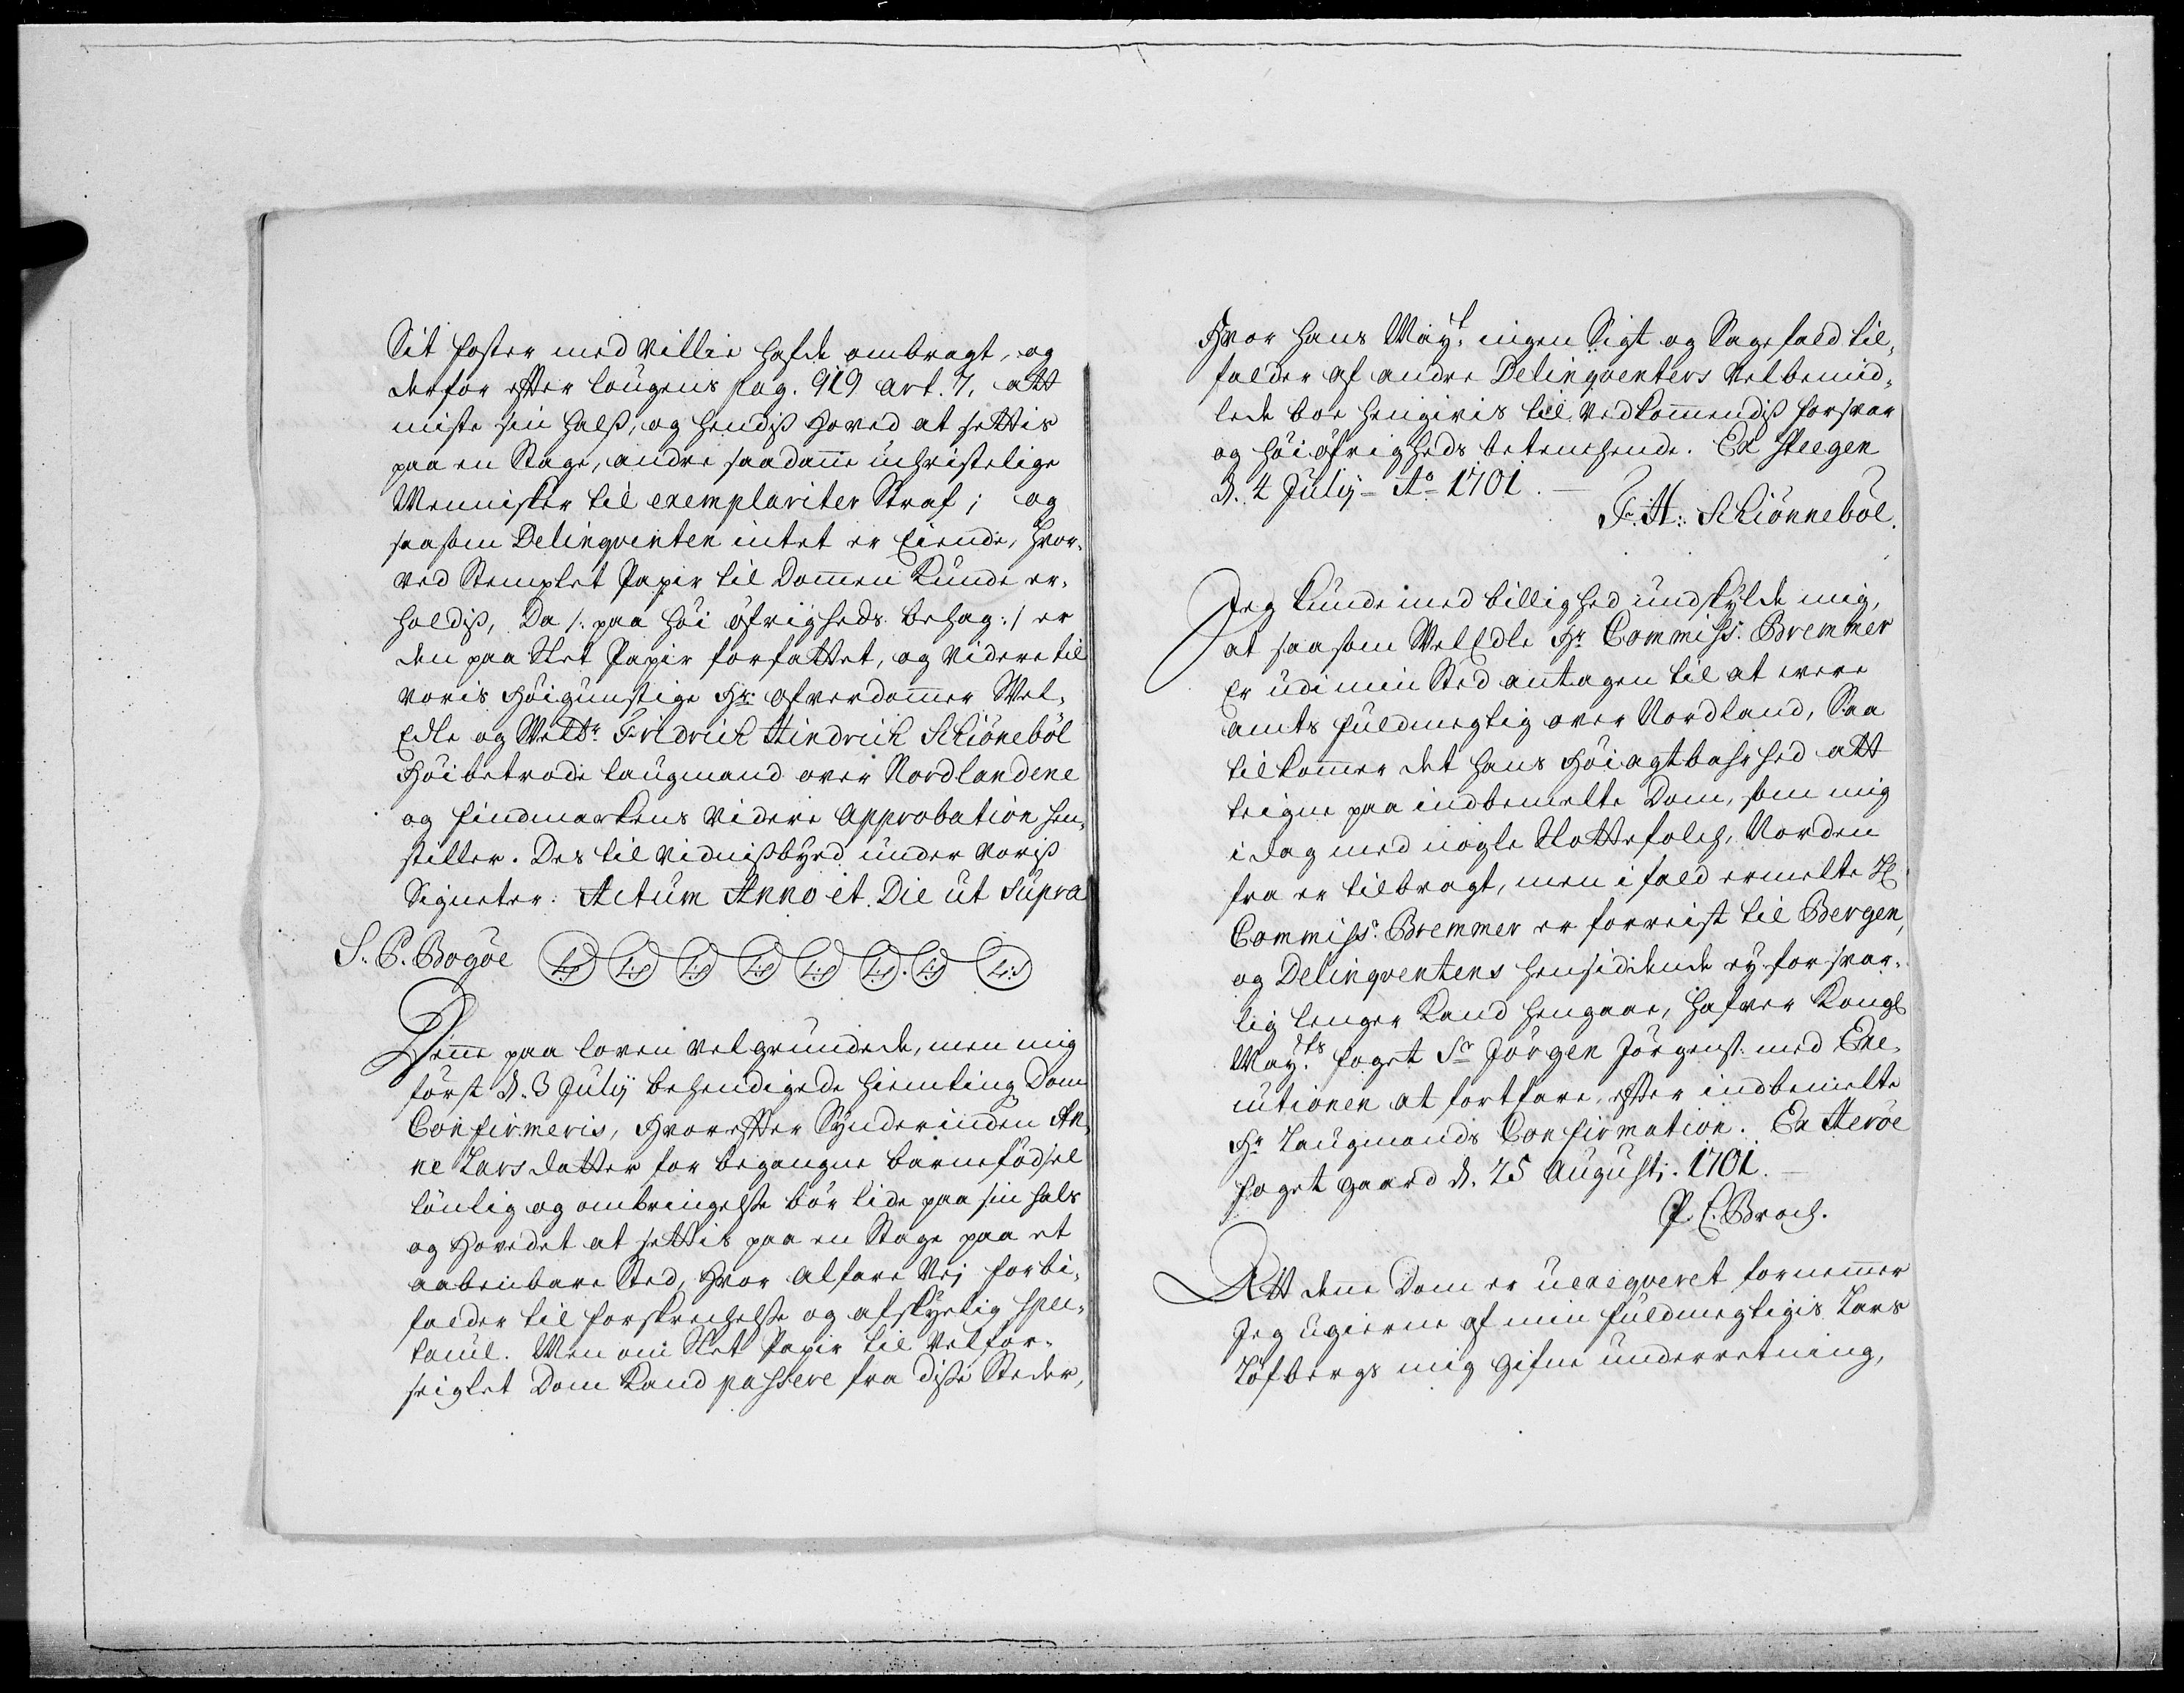 Sit foster med Villie hafde ombragt, og
derfor efter lougens pag. 919 art. 7, att
miste sin halß, og hendiß hoved at settis
paa en Stage, andre saadane uchristelige
Mennisker til exemplariter Straf; og
saasom Delinqventen intet er Eiende, hvor-
ved Stemplet Papir til Dommen kunde er-
holdiß, Da /: paa höi öfrigheds behag :/ er
den paa Slet Papir forfattet, og videre til
voris Höigunstige Hr: Ofverdommer Wel-
Edle og Welbr: Fridrich Hindrich Schiöneböl
Höibetrode laugmand over Nordlandene
og findmarkens Videre Approbation hen-
stiller. Des til Vidnißbyrd under Voriß
Signeter: Actum Anno et Die ut Supra
S. P. Bogöe L:S L:S L:S L:S L:S L:S L:S L:S
Denne paa loven velgrundede, men mig
först d. 3 July behendigede hiemting Dom
Confirmeris, Hvorefter Synderinden An-
ne Larsdatter for begangne barnefödsel
lönlig og ombringelse bör lide paa sin hals
og Hovedet at settis paa en Stage paa et
aabenbare Sted, hvor Alfare Vej forbi-
falder til forskrechelse og afskyelig Spec-
tacul. Men om Slet Papir til Velfor-
seiglet Dom kand passere fra disse Steder,
Hvor hans Mayt. ingen Sigt og Sagefald til-
falder af andre Delinqventers Velbemid-
lede boe hengivis til Vedkommendiß forsvar
og höiöfrigheds betenchende. Ex Steegen
d. 4 July Ao 1701.
Fr. H: Schiönneböl.
Jeg kunde med billighed undskylde mig,
at saasom VelEdle Hr Commiss: Bremmer
Er udi min Sted antagen til at were
amts fuldmegtig over Nordland, Saa
tilkommer det hans Höiagtbahrhed att
teigne paa indbemelte Dom, som mig
idag med nogle Slottefolch, Norden
fra er tilbragt, men i fald ermelte H
Commiss: Bremmer er forreist til Bergen,
og Delinqventens hensiddende ey forsvar-
lig lenger kand hengaae, hafver Kongl
Mayts. foget Sr Jörgen Jörgens: med Exe-
cutionen at fortfare, efter indbemelte
Hr Laugmands Confirmation. Ex Heröe
foget gaard d. 25 Augusti. 1701.
P. C. Broch.
Att denne Dom er uexeqveret fornemmer
Jeg ugierne af min fuldmegtigis Lars
Löfbergs mig gifne underretning,